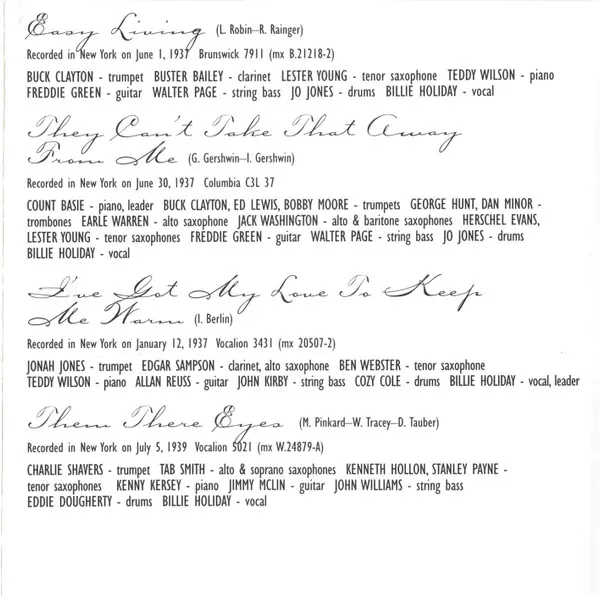 Easy Living (L. Robin–R. Rainger)
Recorded in New York on June 1, 1937 Brunswick 7911 (mx B.21218-2)
BUCK CLAYTON - trumpet BUSTER BAILEY - clarinet LESTER YOUNG - tenor saxophone TEDDY WILSON - piano
FREDDIE GREEN - guitar WALTER PAGE - string bass JO JONES - drums BILLIE HOLIDAY - vocal
They Can't Take That Away
From Me (G. Gershwin–I. Gershwin)
Recorded in New York on June 30, 1937 Columbia C3L 37
COUNT BASIE - piano, leader BUCK CLAYTON, ED LEWIS, BOBBY MOORE - trumpets GEORGE HUNT, DAN MINOR -
trombones EARLE WARREN - alto saxophone JACK WASHINGTON - alto & baritone saxophones HERSCHEL EVANS,
LESTER YOUNG - tenor saxophones FREDDIE GREEN - guitar WALTER PAGE - string bass JO JONES - drums
BILLIE HOLIDAY - vocal
I've Got My Love To Keep
Me Warm (I. Berlin)
Recorded in New York on January 12, 1937 Vocalion 3431 (mx 20507-2)
JONAH JONES - trumpet EDGAR SAMPSON - clarinet, alto saxophone BEN WEBSTER - tenor saxophone
TEDDY WILSON - piano ALLAN REUSS - guitar JOHN KIRBY - string bass COZY COLE - drums BILLIE HOLIDAY - vocal, leader
Them There Eyes (M. Pinkard–W. Tracey–D. Tauber)
Recorded in New York on July 5, 1939 Vocalion 5021 (mx W.24879-A)
CHARLIE SHAVERS - trumpet TAB SMITH - alto & soprano saxophones KENNETH HOLLON, STANLEY PAYNE -
tenor saxophones KENNY KERSEY - piano JIMMY MCLIN - guitar JOHN WILLIAMS - string bass
EDDIE DOUGHERTY - drums BILLIE HOLIDAY - vocal